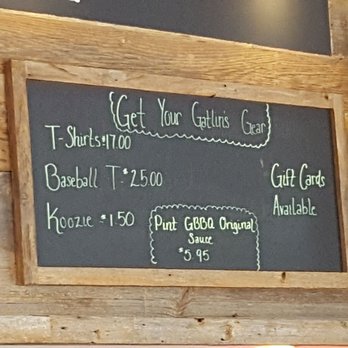 Get Your Gatlin's Gear
T-Shirts $17.00
Baseball T: $25.00
Koozie $1.50
Gift Cards
Available
Pint GBBQ Original
Sauce
$5.95